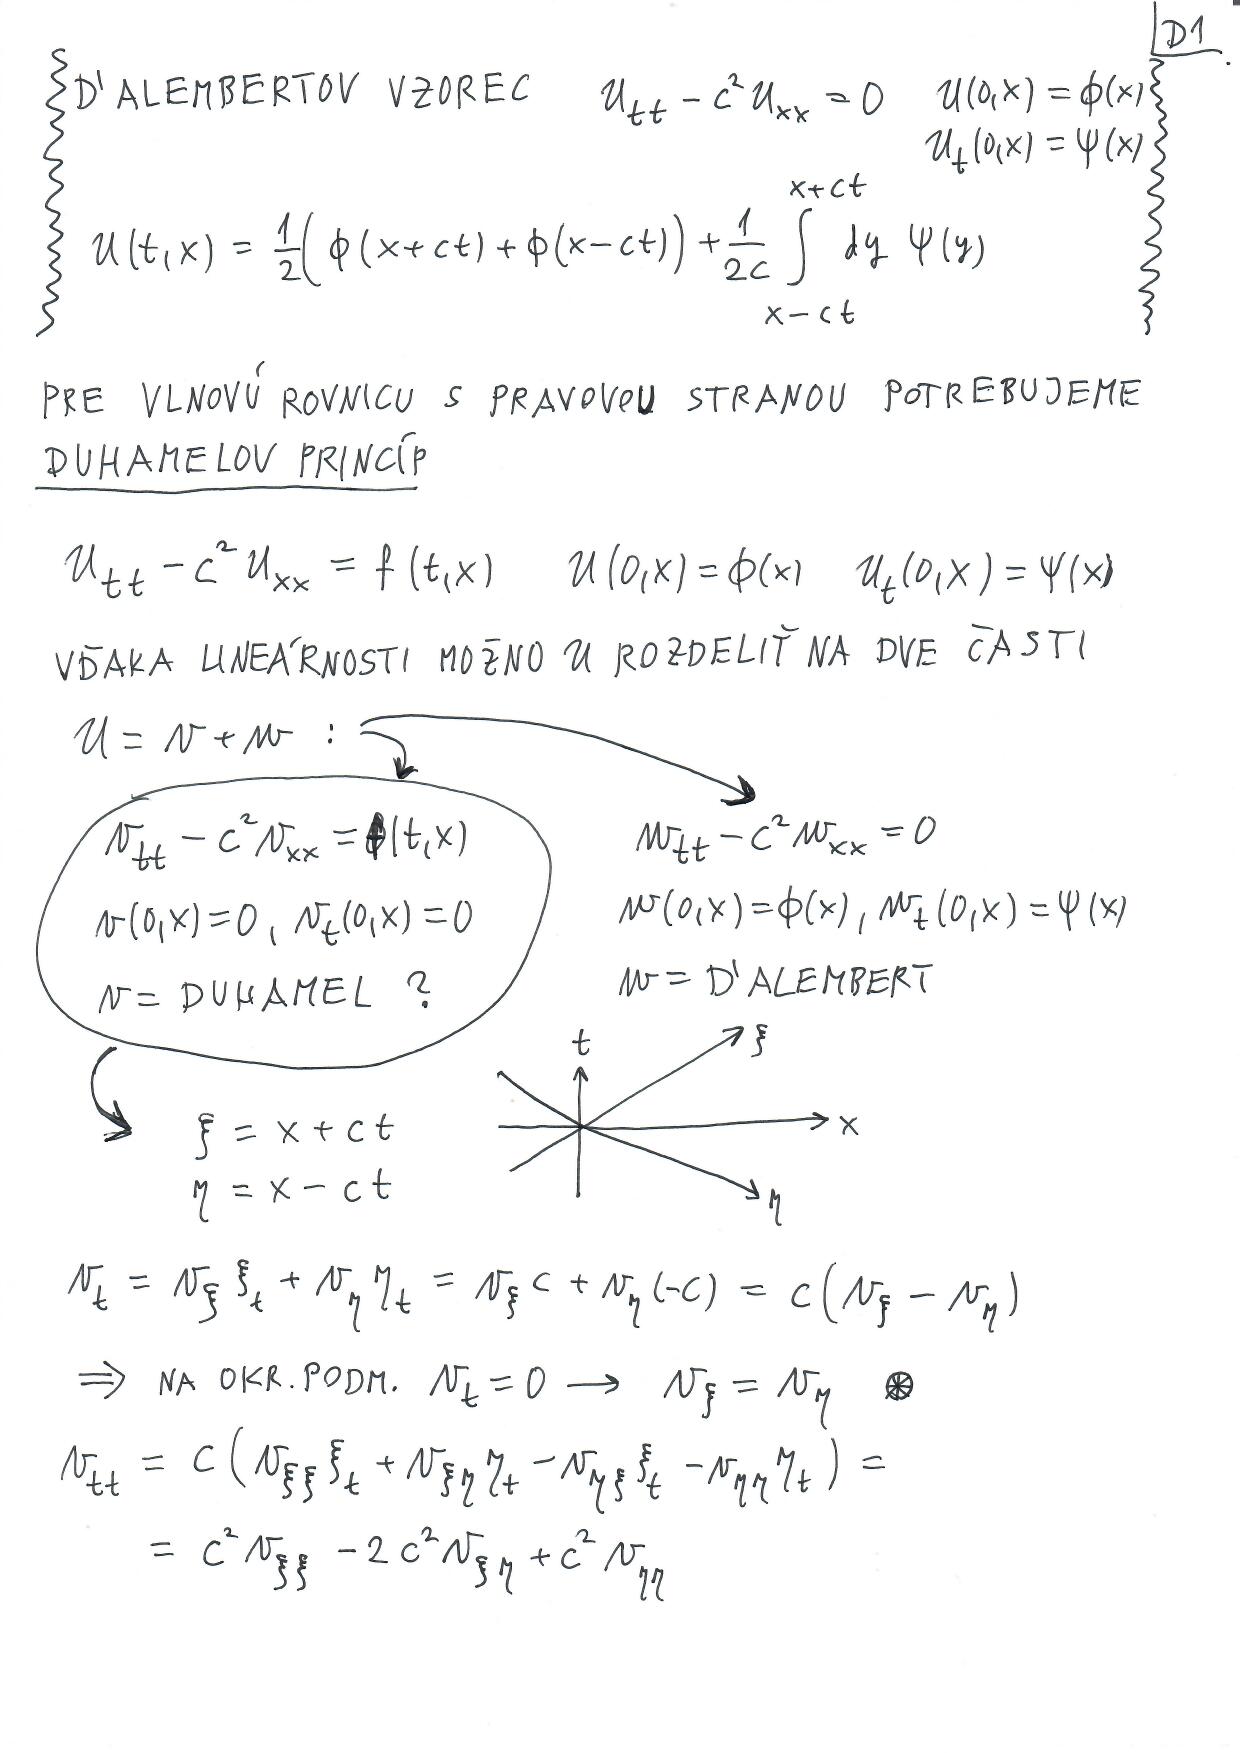 D1
D'ALEMBERTOV VZOREC u_tt - c² u_xx = 0 u(0,x) = ϕ(x)
u_t(0,x) = ψ(x)
u(t,x) = 1/2 (ϕ(x+ct) + ϕ(x-ct)) + 1/2c ∫_{x-ct}^{x+ct} dy ψ(y)
PRE VLNOVÚ ROVNICU S PRAVOVOU STRANOU POTREBUJEME
DUHAMELOV PRINCÍP
u_tt - c² u_xx = f(t,x) u(0,x) = ϕ(x) u_t(0,x) = ψ(x)
VĎAKA LINEÁRNOSTI MOŽNO u ROZDELIŤ NA DVE ČASTI
u = v + w :
v_tt - c² v_xx = f(t,x)
v(0,x) = 0, v_t(0,x) = 0
v = DUHAMEL ?
w_tt - c² w_xx = 0
w(0,x) = ϕ(x), w_t(0,x) = ψ(x)
w = D'ALEMBERT
t ξ
x
η
ξ = x + ct
η = x - ct
v_t = v_ξ ξ_t + v_η η_t = v_ξ c + v_η (-c) = c(v_ξ - v_η)
⇒ NA OKR. PODM. v_t = 0 → v_ξ = v_η ⊛
v_tt = c(v_ξξ ξ_t + v_ξη η_t - v_ηξ ξ_t - v_ηη η_t) =
= c² v_ξξ - 2c² v_ξη + c² v_ηη